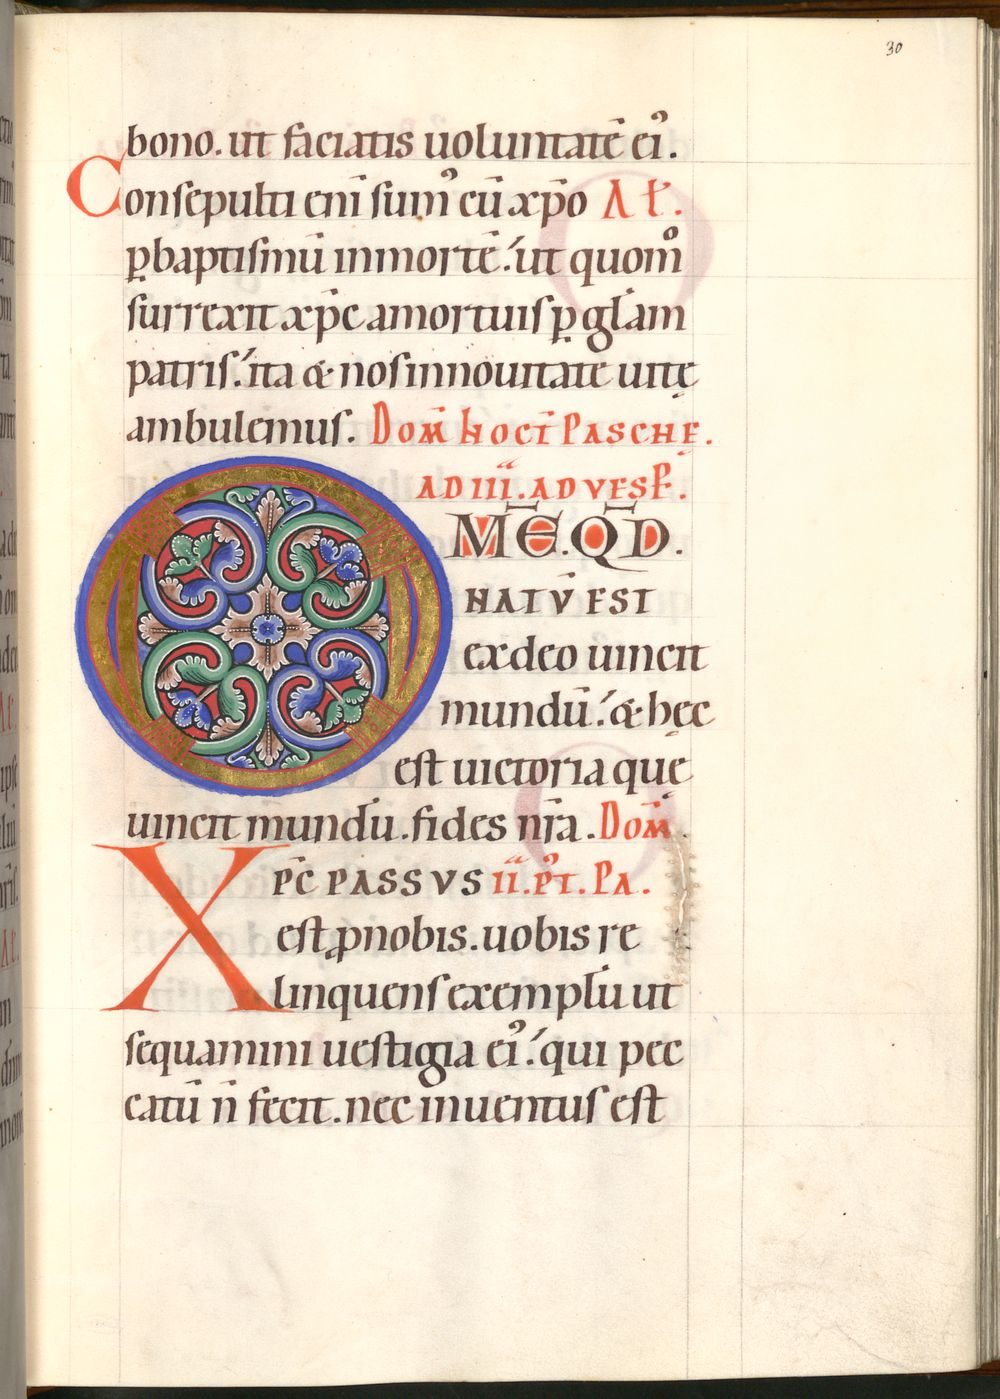 30
bono. ut faciatis uoluntatē ei᾿.
Consepulti eni̅ sum᾿ cū xp̄o Al̄.
ꝑbaptismū inmortē. ut quom̊
surrexit xp̄c amortuis ꝑ gl̄am
patris. ita & nos innouitate uitę
ambulemus. Dom̄ hoct̄ Pasche.
AD III. AD VESP̄.
OM̄E. QD̄.
NATV̄ EST
exdeo uincit
mundū. & hęc
est uictoria quę
uincit mundū. fides nr̄a. Dom̄.
Xp̄c PASSVS II. P᾿T. PA.
est ꝓnobis. uobis re
linquens exemplū ut
sequamini uestigia ei᾿. qui pec
catū n̄ fecit. nec inuentus est